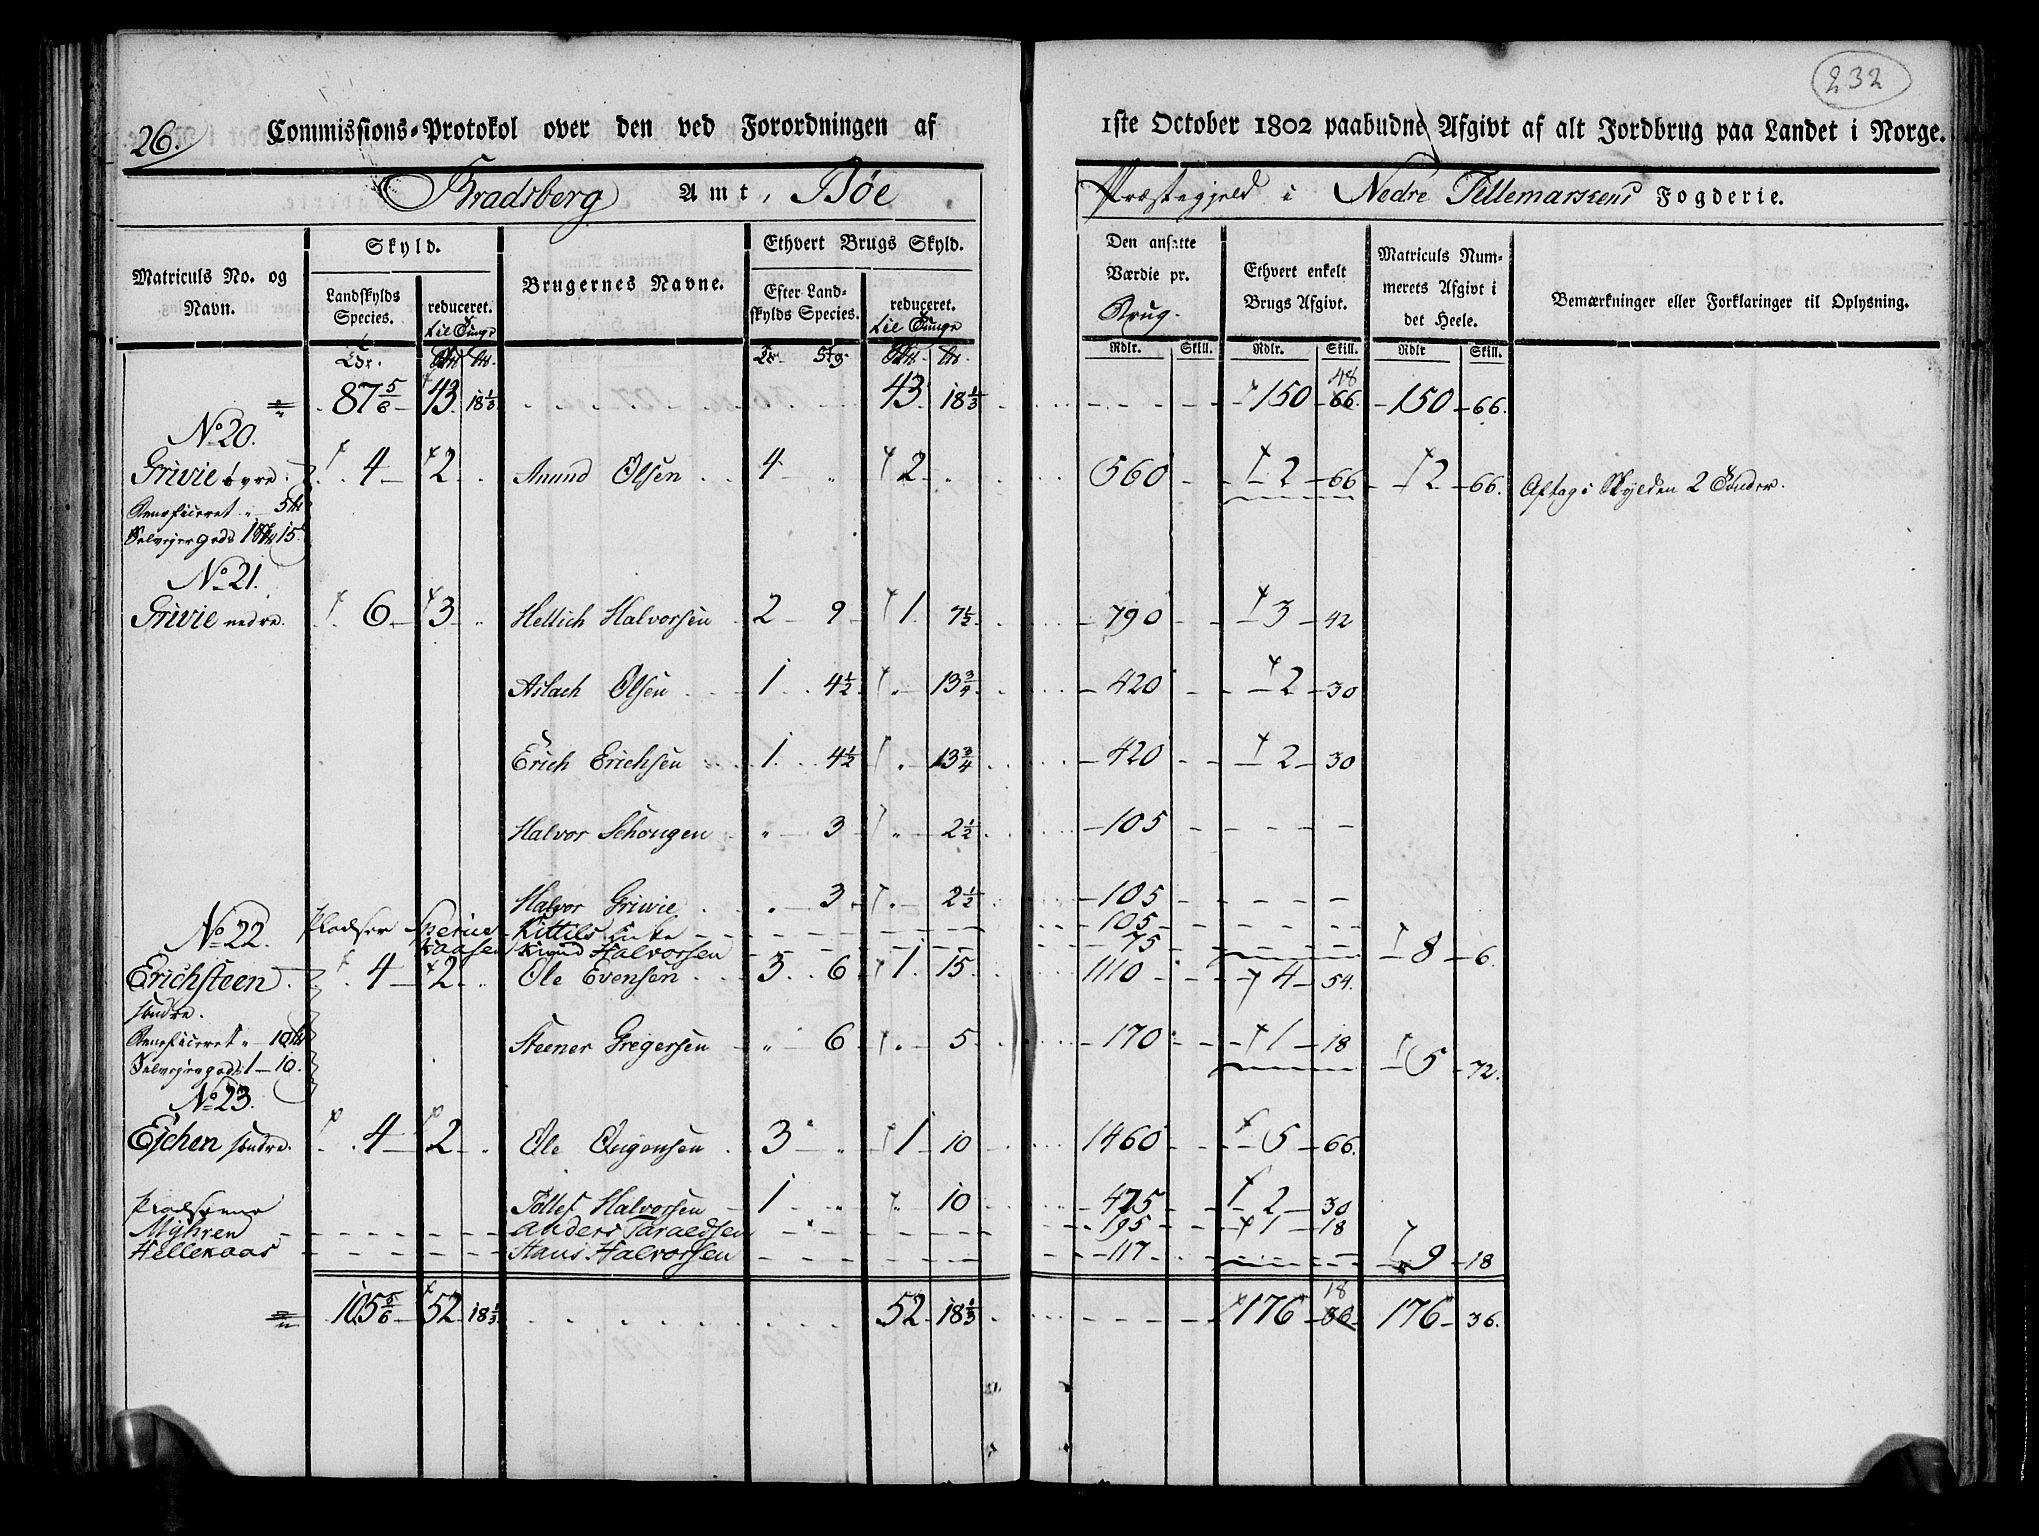 232
26.
Commissions-Protokol over den ved Forordningen af 1ste October 1802 paabudne Afgivt af alt Jordbrug paa Landet i Norge.
Bradsberg Amt, Bøe Præstegjeld i Nedre Tellemarkens Fogderie.
Matriculs No. og Navn.
Skyld.
Landskylds Species.
reduceret.
Brugernes Navne.
Ethvert Brugs Skyld.
Efter Landskylds Species.
reduceret.
Den ansatte Værdie pr. Brug.
Ethvert enkelt Brugs Afgivt.
Matriculs Nummerets Afgivt i det Heele.
Bemærkninger eller Forklaringer til Oplysning.
Rdlr. Skill. Rdlr. Skill. Rdlr Skill.
87 5/6 43 18 1/3 43 18 1/3 150 48 66 150 66.
No 20.
Grivie øvre. 4 2 Anund Olsen 4 2 560 2 66 2 66. Aftag i Skylden 2 Tønder.
Beneficeret 5
Selveiergods 1 15
No 21.
Grivie nedre. 6 3 Hellich Halvorsen 2 9 1 7 1/2 790 3 42
Aslach Olsen 1 4 1/2 13 3/4 420 2 30
Erich Erichsen 1 4 1/2 13 3/4 420 2 30
Halvor Schougen 3 2 1/2 105
Halvor Griwie 3 2 1/2 105
Pladser Kittils 105
No 22. Knud Halvorsen 75 8 6.
Erichsteen 4 2 Ole Evensen 3 6 1 15 1110 4 54.
søndre.
Beneficeret 10
Steener Gregersen 6 5 170 1 18
Selveiergods 1 10. 5 72.
No 23.
Eschen søndre. 4 2 Ole Ougonsen 3 1 10 1460 5 66.
Pladserne Tollef Halvorsen 1 10 475 2 30
Myhren Anders Taraldsen 195 1 18
Hellekaas Hans Halvorsen 117 9 18
105 5/6 52 18 1/3 52 18 1/3 176 18 36 176 36.